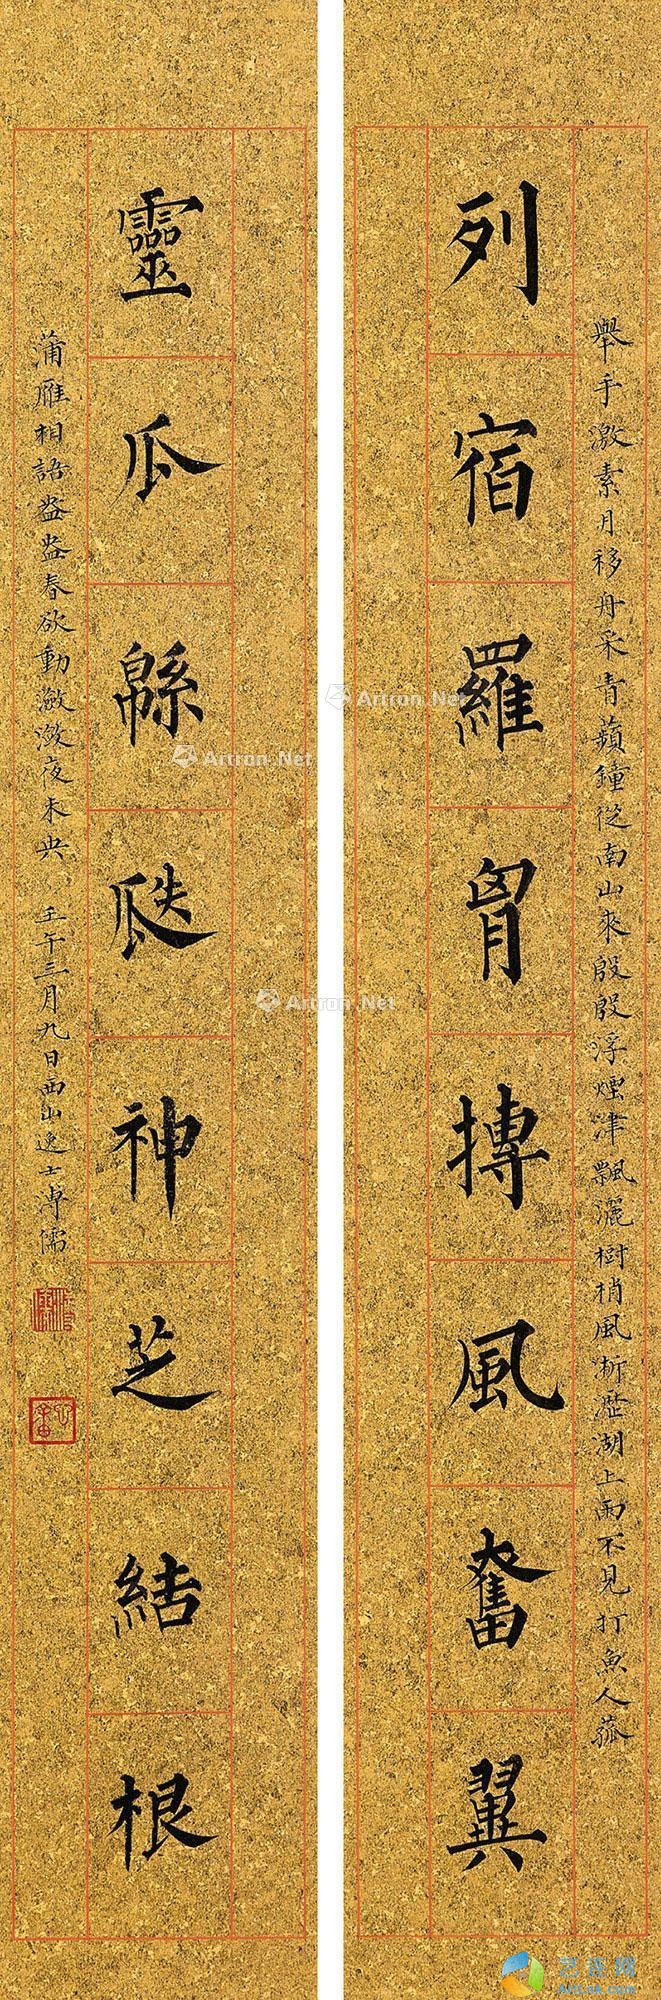 列宿羅胷摶風奮翼
舉手激素月移舟采青蘋鐘從南山來殷殷浮煙津飄灑樹梢風淅瀝湖上雨不見打魚人菰
靈瓜緜瓞神芝結根
蒲雁相語盎盎春欲動瀲瀲夜未央 壬午三月九日西山逸士溥儒
Artron.Net
Artron.Net
Artron.Net